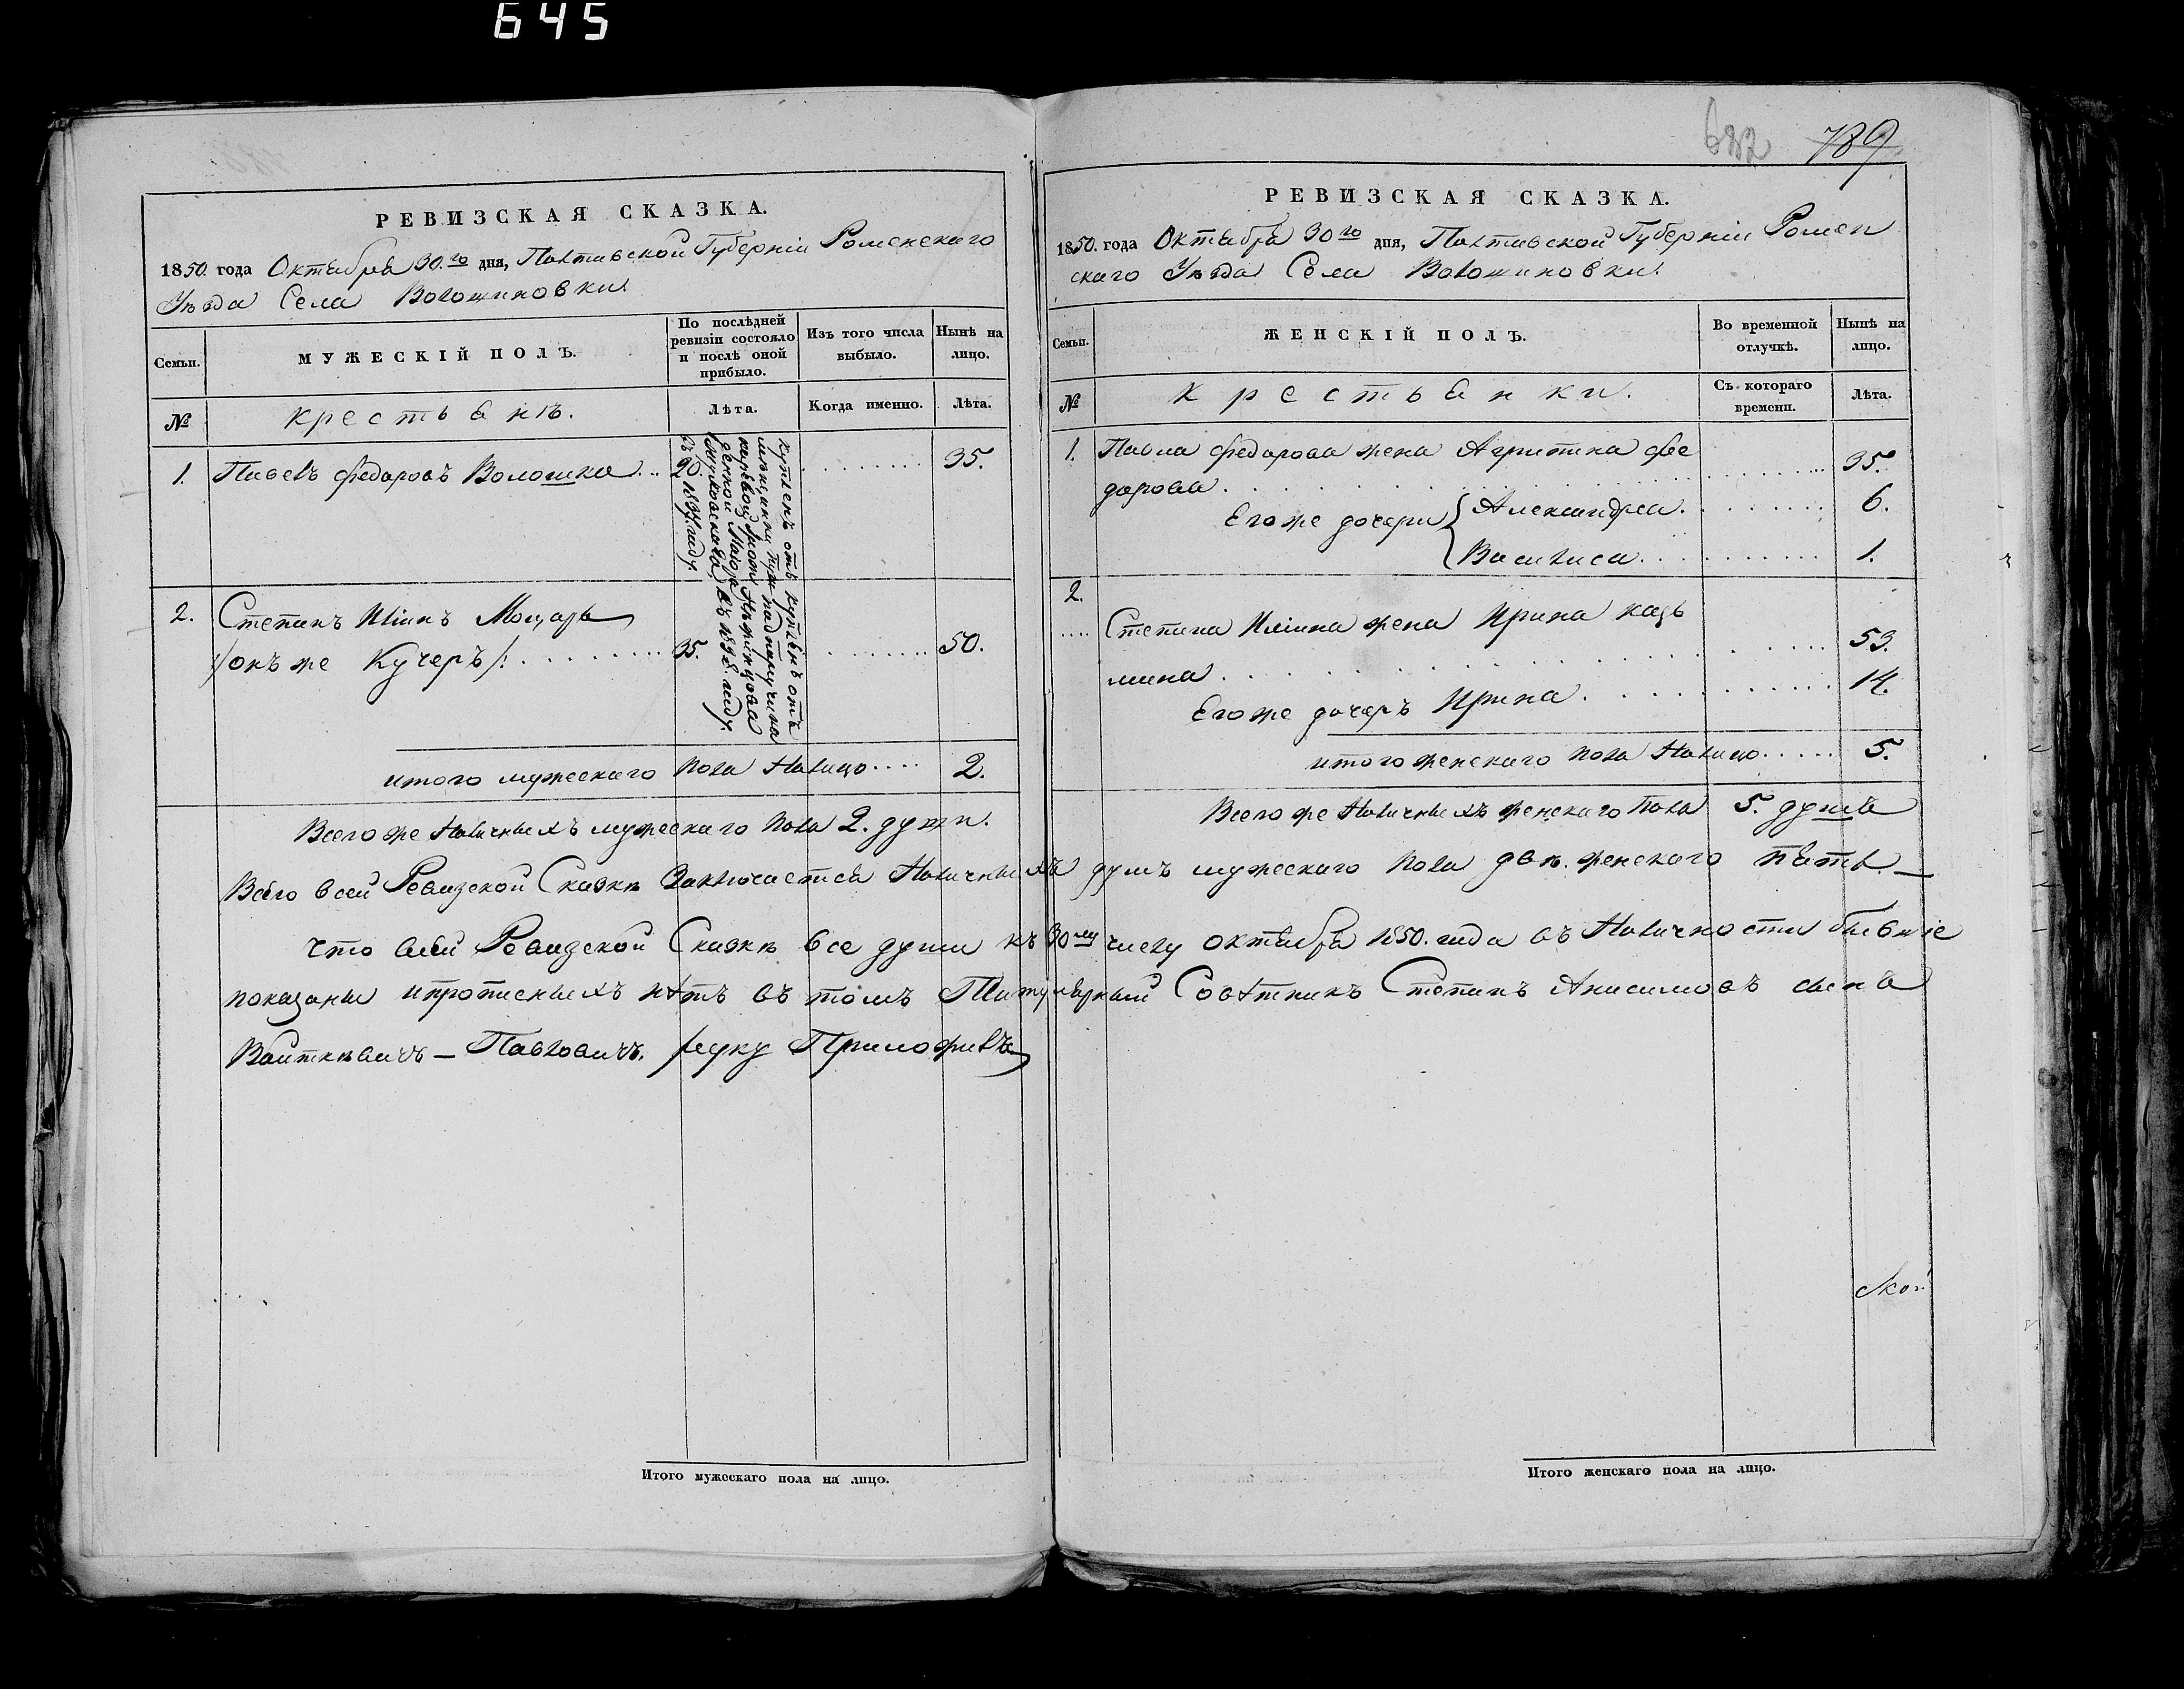 645
РЕВИЗСКАЯ СКАЗКА.
1850. года Октября 30.го дня, Полтавской Губерніи Роменскаго
Уѣзда Села Волошиновки.
Семьи.
МУЖЕСКІЙ ПОЛЪ.
По послѣдней
ревизіи состояло
и послѣ оной
прибыло.
Изъ того числа
выбыло.
Нынѣ на
лицо.
№
крестьянъ.
Лѣта.
Когда именно.
Лѣта.
1. Павелъ Федоровъ Волошка... 20. 35.
въ 1837. году.
купленъ отъ
2. Степанъ Иліинъ Моцарь
/:онъ же Кучеръ:/ 35. 50.
купленъ отъ
въ 1838. году.
итого мужескаго пола Налицо.... 2.
Всего же Наличныхъ мужескаго пола 2. души.
682 789
РЕВИЗСКАЯ СКАЗКА.
1850. года Октября 30го дня, Полтавской Губерніи Ромен
скаго Уѣзда Села Волошиновки.
Семьи.
ЖЕНСКІЙ ПОЛЪ.
Во временной
отлучкѣ.
Нынѣ на
лицо.
№
крестьянки.
Съ котораго
времени.
Лѣта.
1. Павла Федорова жена Агрипина Фе
дорова. 35.
Егоже дочери Александра. 6.
Василиса. 1.
2.
Степана Иліина жена Ирина казь
мина. 53.
Егоже дочеръ Ирина. 14.
итого женскаго пола Налицо..... 5.
Всего же Наличныхъ женскаго пола 5. душъ
Всего всей Ревизской Сказкѣ Заключается Наличныхъ душъ мужескаго пола двѣ. женскаго пять.—
что всей Ревизской Сказкѣ все души къ 30му числу октября 1850. года въ Наличности бывшіе
показаны ипрописныхъ нѣтъ въ томъ Титулярный Совѣтникъ Степанъ Анисимовъ сынъ
Войткѣвичъ — Павловичъ. руку Приложилъ
Итого мужескаго пола на лицо.
Итого женскаго пола на лицо.